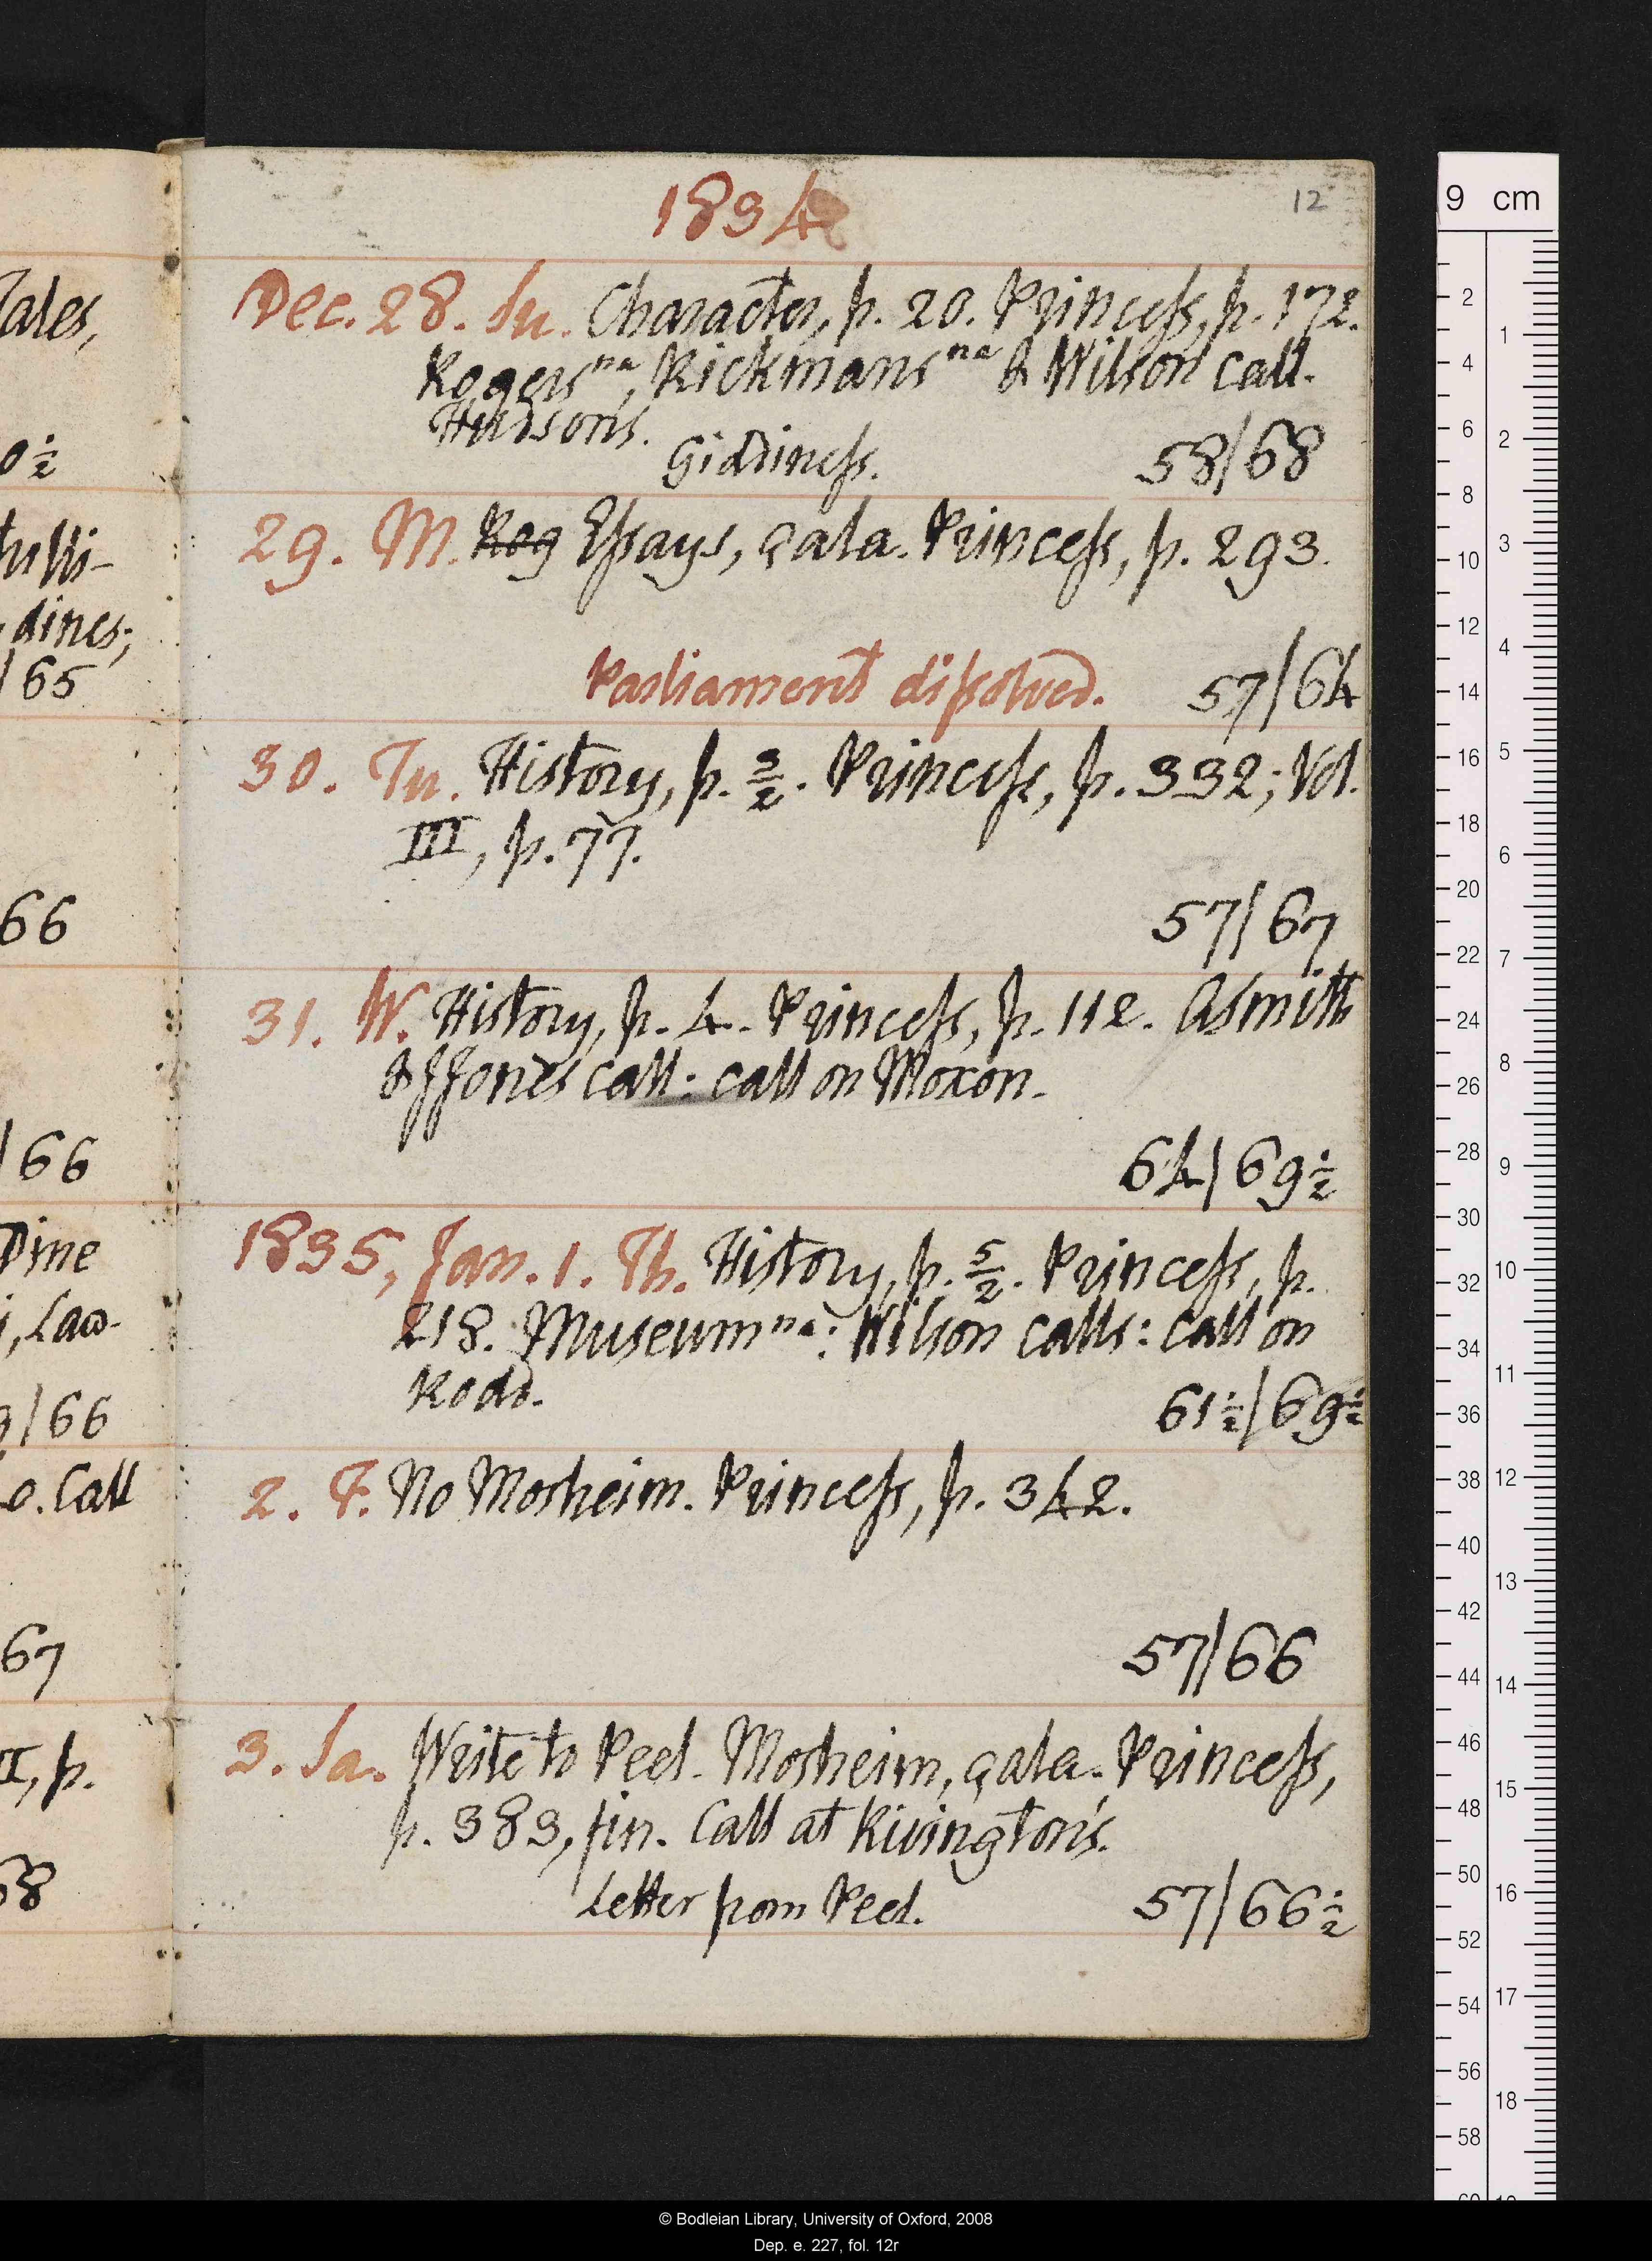 1834
12
Dec. 28. Su. Character, p. 20. Princess, p. 172.
Rogers na, Rickmans na & Wilson call.
Hudson's.
Giddiness. 58/68
29. M. Rog Essays, çala. Princess, p. 293.
Parliament dissolved. 57/64
30. Tu. History, p. 3/2. Princess, p. 332; Vol.
III, p. 77.
57/67
31. W. History, p. 4. Princess, p. 112. Asmith
& JJones call: call on Moxon.
64/69½
1835, Jan. 1. Th. History, p. 5/2. Princess, p.
218. Museum na: Wilson calls: call on
Rodd.
61½/69½
2. F. No Mosheim. Princess, p. 342.
57/66
3. Sa. Write to Peel. Mosheim, çala. Princess,
p. 383, fin. Call at Rivington's.
Letter from Peel. 57/66½
ales,
0½
dines;
/65
66
/66
Dine
, Law-
/66
o. Call
67
I, p.
9 cm
2
4
6
8
10
12
14
16
18
20
22
24
26
28
30
32
34
36
38
40
42
44
46
48
50
52
54
56
58
1
2
3
4
5
6
7
8
9
10
11
12
13
14
15
16
17
18
© Bodleian Library, University of Oxford, 2008
Dep. e. 227, fol. 12r